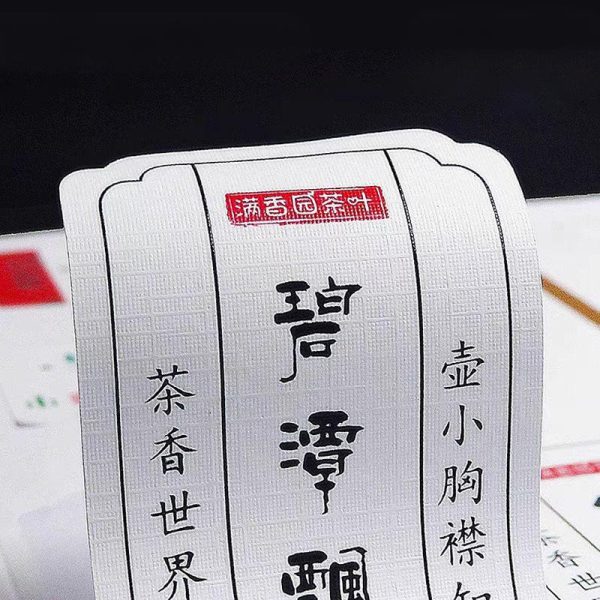 满香园茶叶
碧潭飘
壶小胸襟
茶香世界
茶香世界